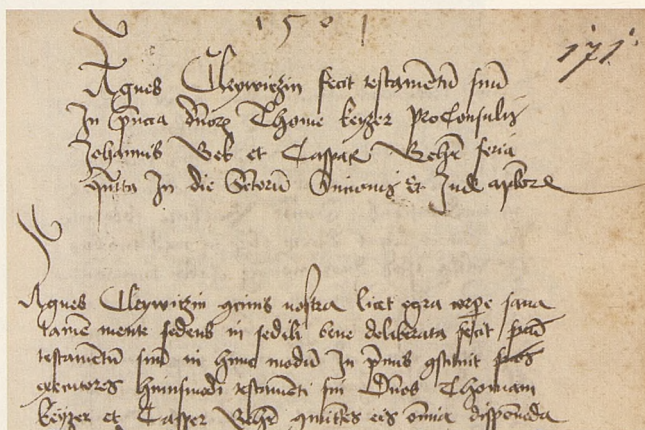 1501
171
Agnes Cleywiczin fecit testamentū suū
In pn̄cia dn̄orꝝ Thome keyzer proconsulis
Johannis Bek et Caspar Behē feria
qn̄ta In die Sctorū Simonis Et Jude aplorꝝ
Agnes Cleywiczin nostra licet egra corpe sana
tamē mente sedens in sedili bene deliberata fecit
testamentū suū in hunc modū In pmis ꝯstituit suos
executores huiusmodi testamēti sui Dn̄os Thomam
keyzer et Casper Behē eis omīa disponeda